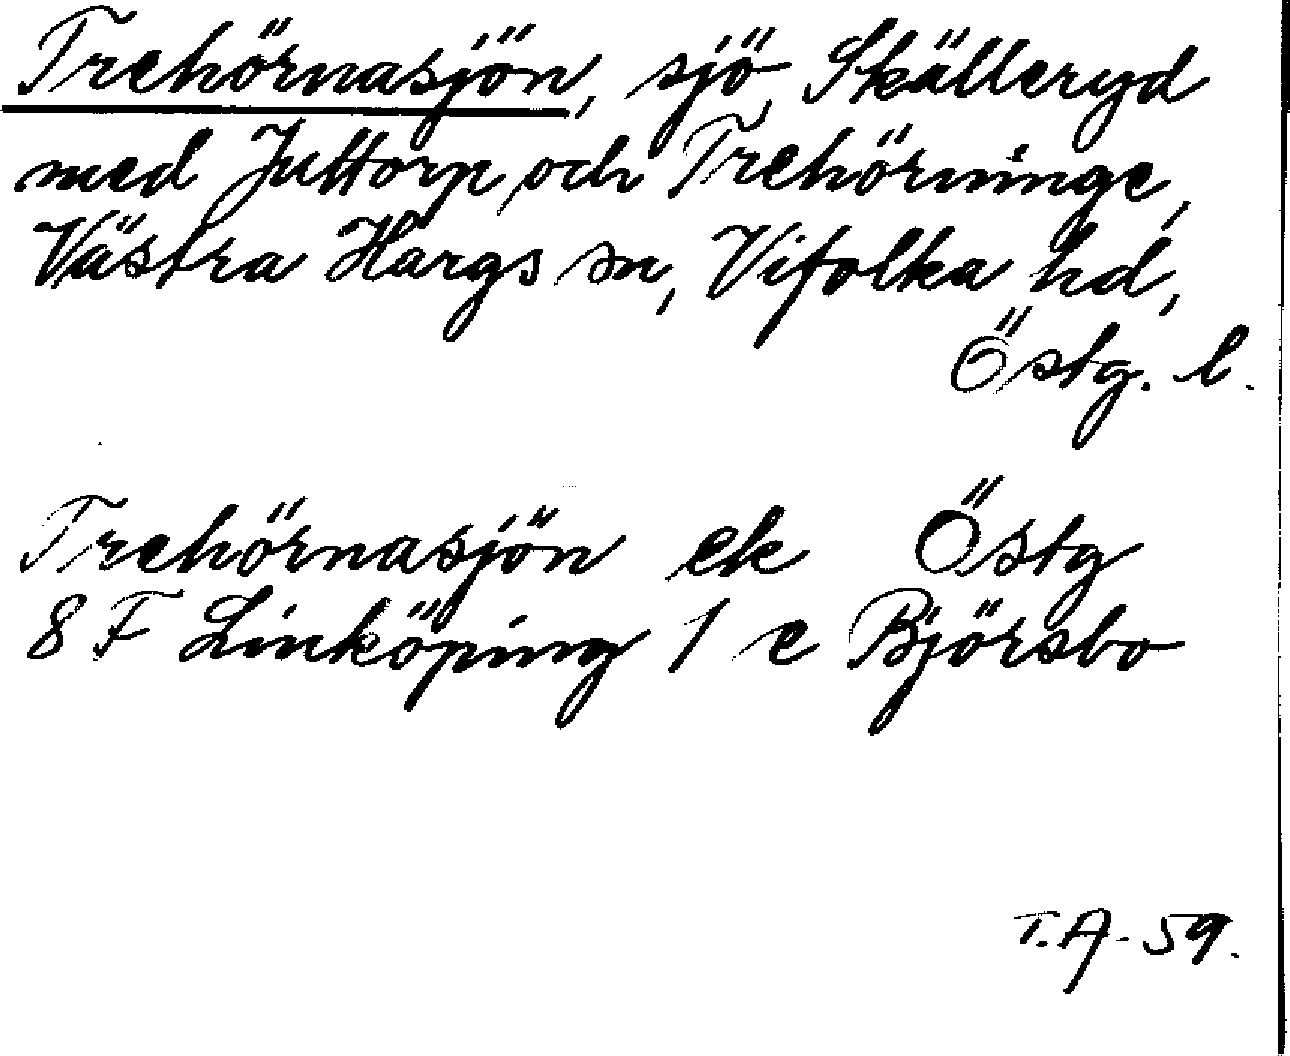 Trehörnasjön, sjö, Skälleryd
med Juttorp och Trehörninge,
Västra Hargs sn, Vifolka hd,
Östg. l.
Trehörnasjön ek Östg
8 F Linköping 1 e Björsbo
T.A. 59.